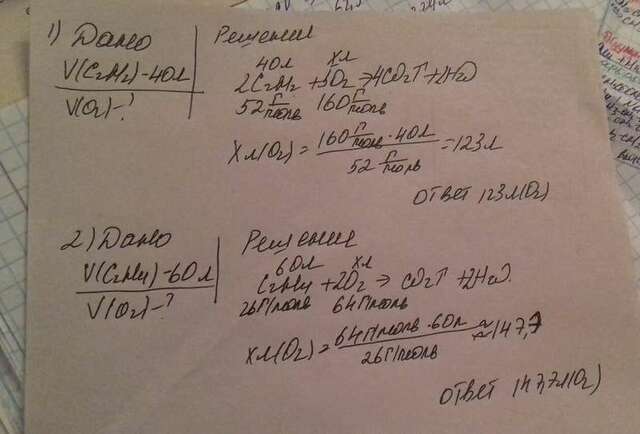 1) Дано
V(C₂H₂) - 40л
V(O₂) - ?
Решения
40л хл
2C₂H₂ + 5O₂ → 4CO₂↑ + 2H₂O
52 г/моль 160 г/моль
Хл(O₂) = 160 г/моль · 40л / 52 г/моль = 123л
ответ 123л(O₂)
2) Дано
V(C₂H₄) - 60л
V(O₂) - ?
Решения
60л хл
C₂H₄ + 2O₂ → CO₂↑ + 2H₂O.
26г/моль 64г/моль
Хл(O₂) = 64г/моль · 60л / 26г/моль ≈ 147,7
ответ 147,7л(O₂)